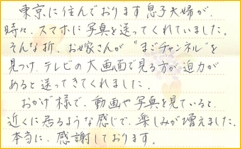 東京に住んでおります息子夫婦が、
時々、スマホに写真を送ってくれていました。
そんな折、お嫁さんが "まごチャンネル" を
見つけ、テレビの大画面で見る方が迫力が
あると送ってきてくれました。
おかげ様で、動画や写真を見ていると、
近くに居るような感じで、楽しみが増えました。
本当に、感謝しております。